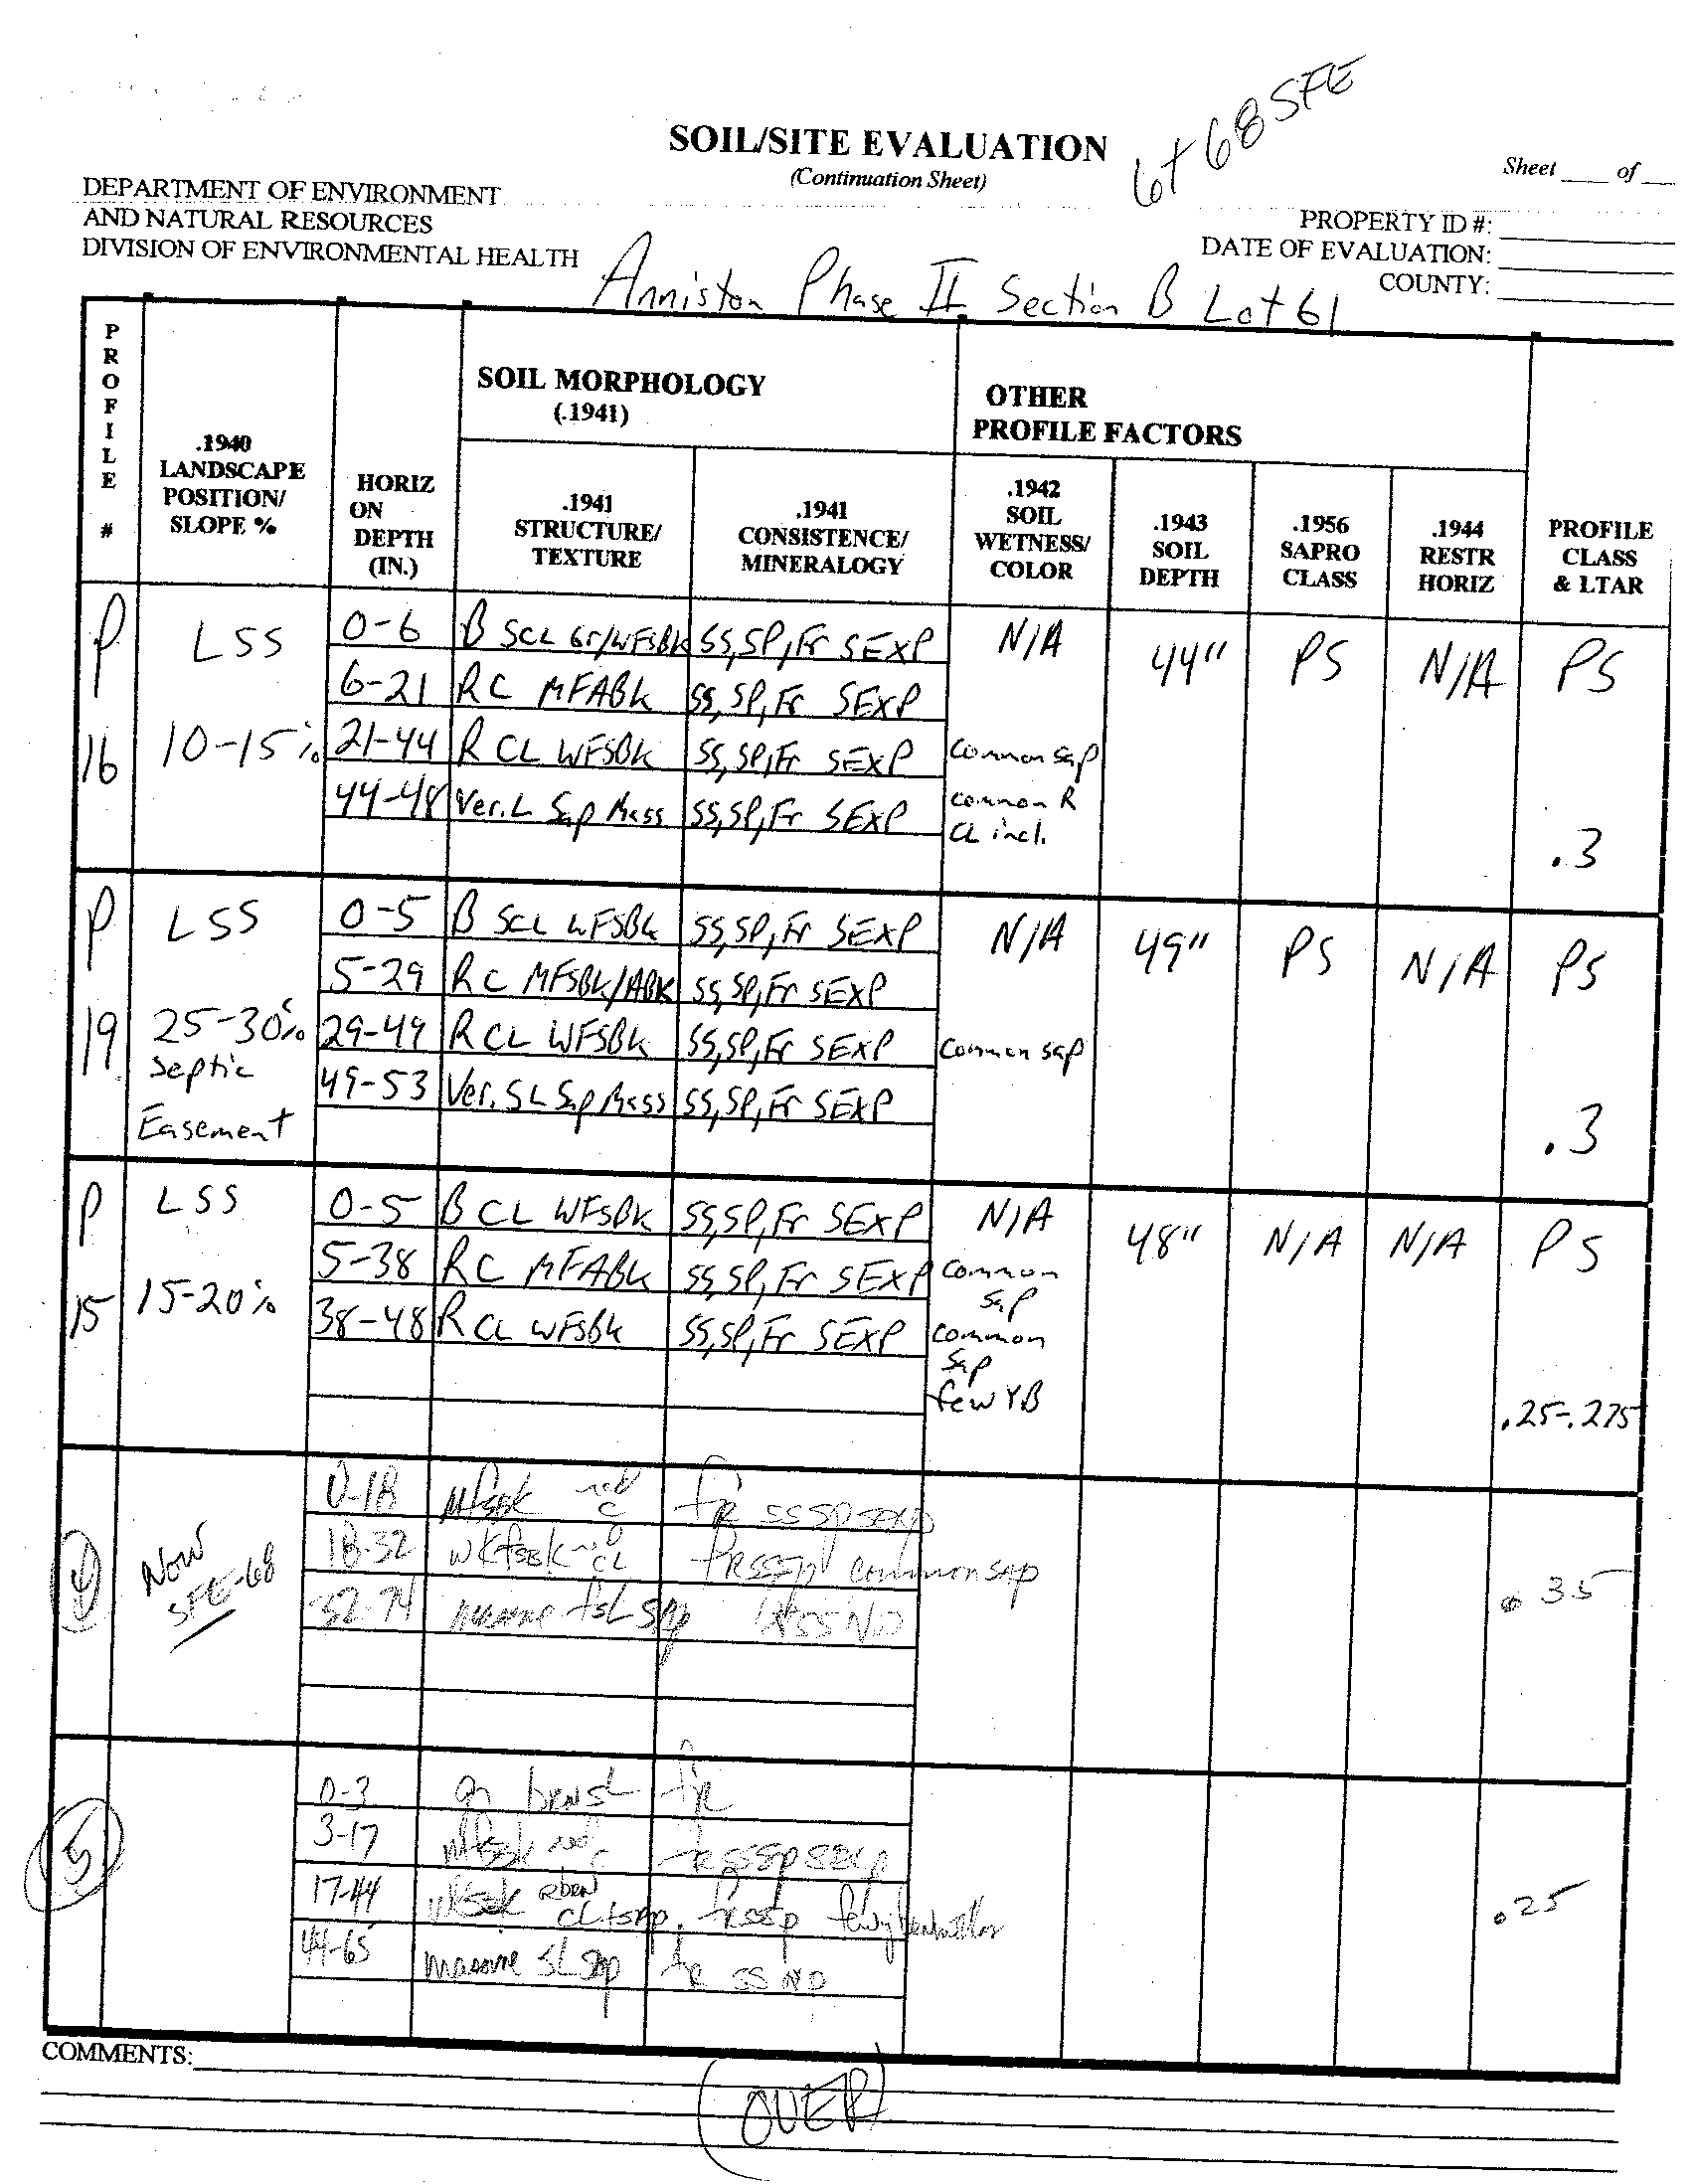 Lot 68 SFE
SOIL/SITE EVALUATION
(Continuation Sheet)
Sheet ____ of ____
DEPARTMENT OF ENVIRONMENT
AND NATURAL RESOURCES
DIVISION OF ENVIRONMENTAL HEALTH
PROPERTY ID #:
DATE OF EVALUATION:
COUNTY:
Anniston Phase II Section B Lot 61
PROFILE #
.1940 LANDSCAPE POSITION/ SLOPE %
HORIZ ON DEPTH (IN.)
SOIL MORPHOLOGY (.1941)
.1941 STRUCTURE/ TEXTURE
.1941 CONSISTENCE/ MINERALOGY
OTHER PROFILE FACTORS
.1942 SOIL WETNESS/ COLOR
.1943 SOIL DEPTH
.1956 SAPRO CLASS
.1944 RESTR HORIZ
PROFILE CLASS & LTAR
P 16 LSS 10-15%
0-6 B SCL Gr/WFSBK SS,SP,Fr SEXP N/A 44" PS N/A PS
6-21 RC MFABK SS,SP,Fr SEXP
21-44 R CL WFSBK SS,SP,Fr SEXP Common sap
44-48 Ver. L Sap Mass SS,SP,Fr SEXP Common R CL incl.
.3
P 19 LSS 25-30% Septic Easement
0-5 B SCL WFSBK SS,SP,Fr SEXP N/A 49" PS N/A PS
5-29 RC MFSBK/ABK SS,SP,Fr SEXP
29-49 R CL WFSBK SS,SP,Fr SEXP Common sap
49-53 Ver. SL Sap Mass SS,SP,Fr SEXP
.3
P 15 LSS 15-20%
0-5 B CL WFSBK SS,SP,Fr SEXP N/A 48" N/A N/A PS
5-38 RC MFABK SS,SP,Fr SEXP Common Sap
38-48 R CL WFSBK SS,SP,Fr SEXP Common Sap few YB
.25-.275
4 Now SFE-68
0-18 Mfsbk red C fr ss sp sexp
18-32 wkfsbk red CL fr ss sp common sap
32-74 massive fsL sap SS NP
.35
5
0-3 gr brn SL fr
3-17 mfsbk red C fr ss sp sexp
17-44 wkfsbk Rbrn CL+sap. fr ss p few
44-65 massive SL sap fr SS NP
.25
COMMENTS:
OVER